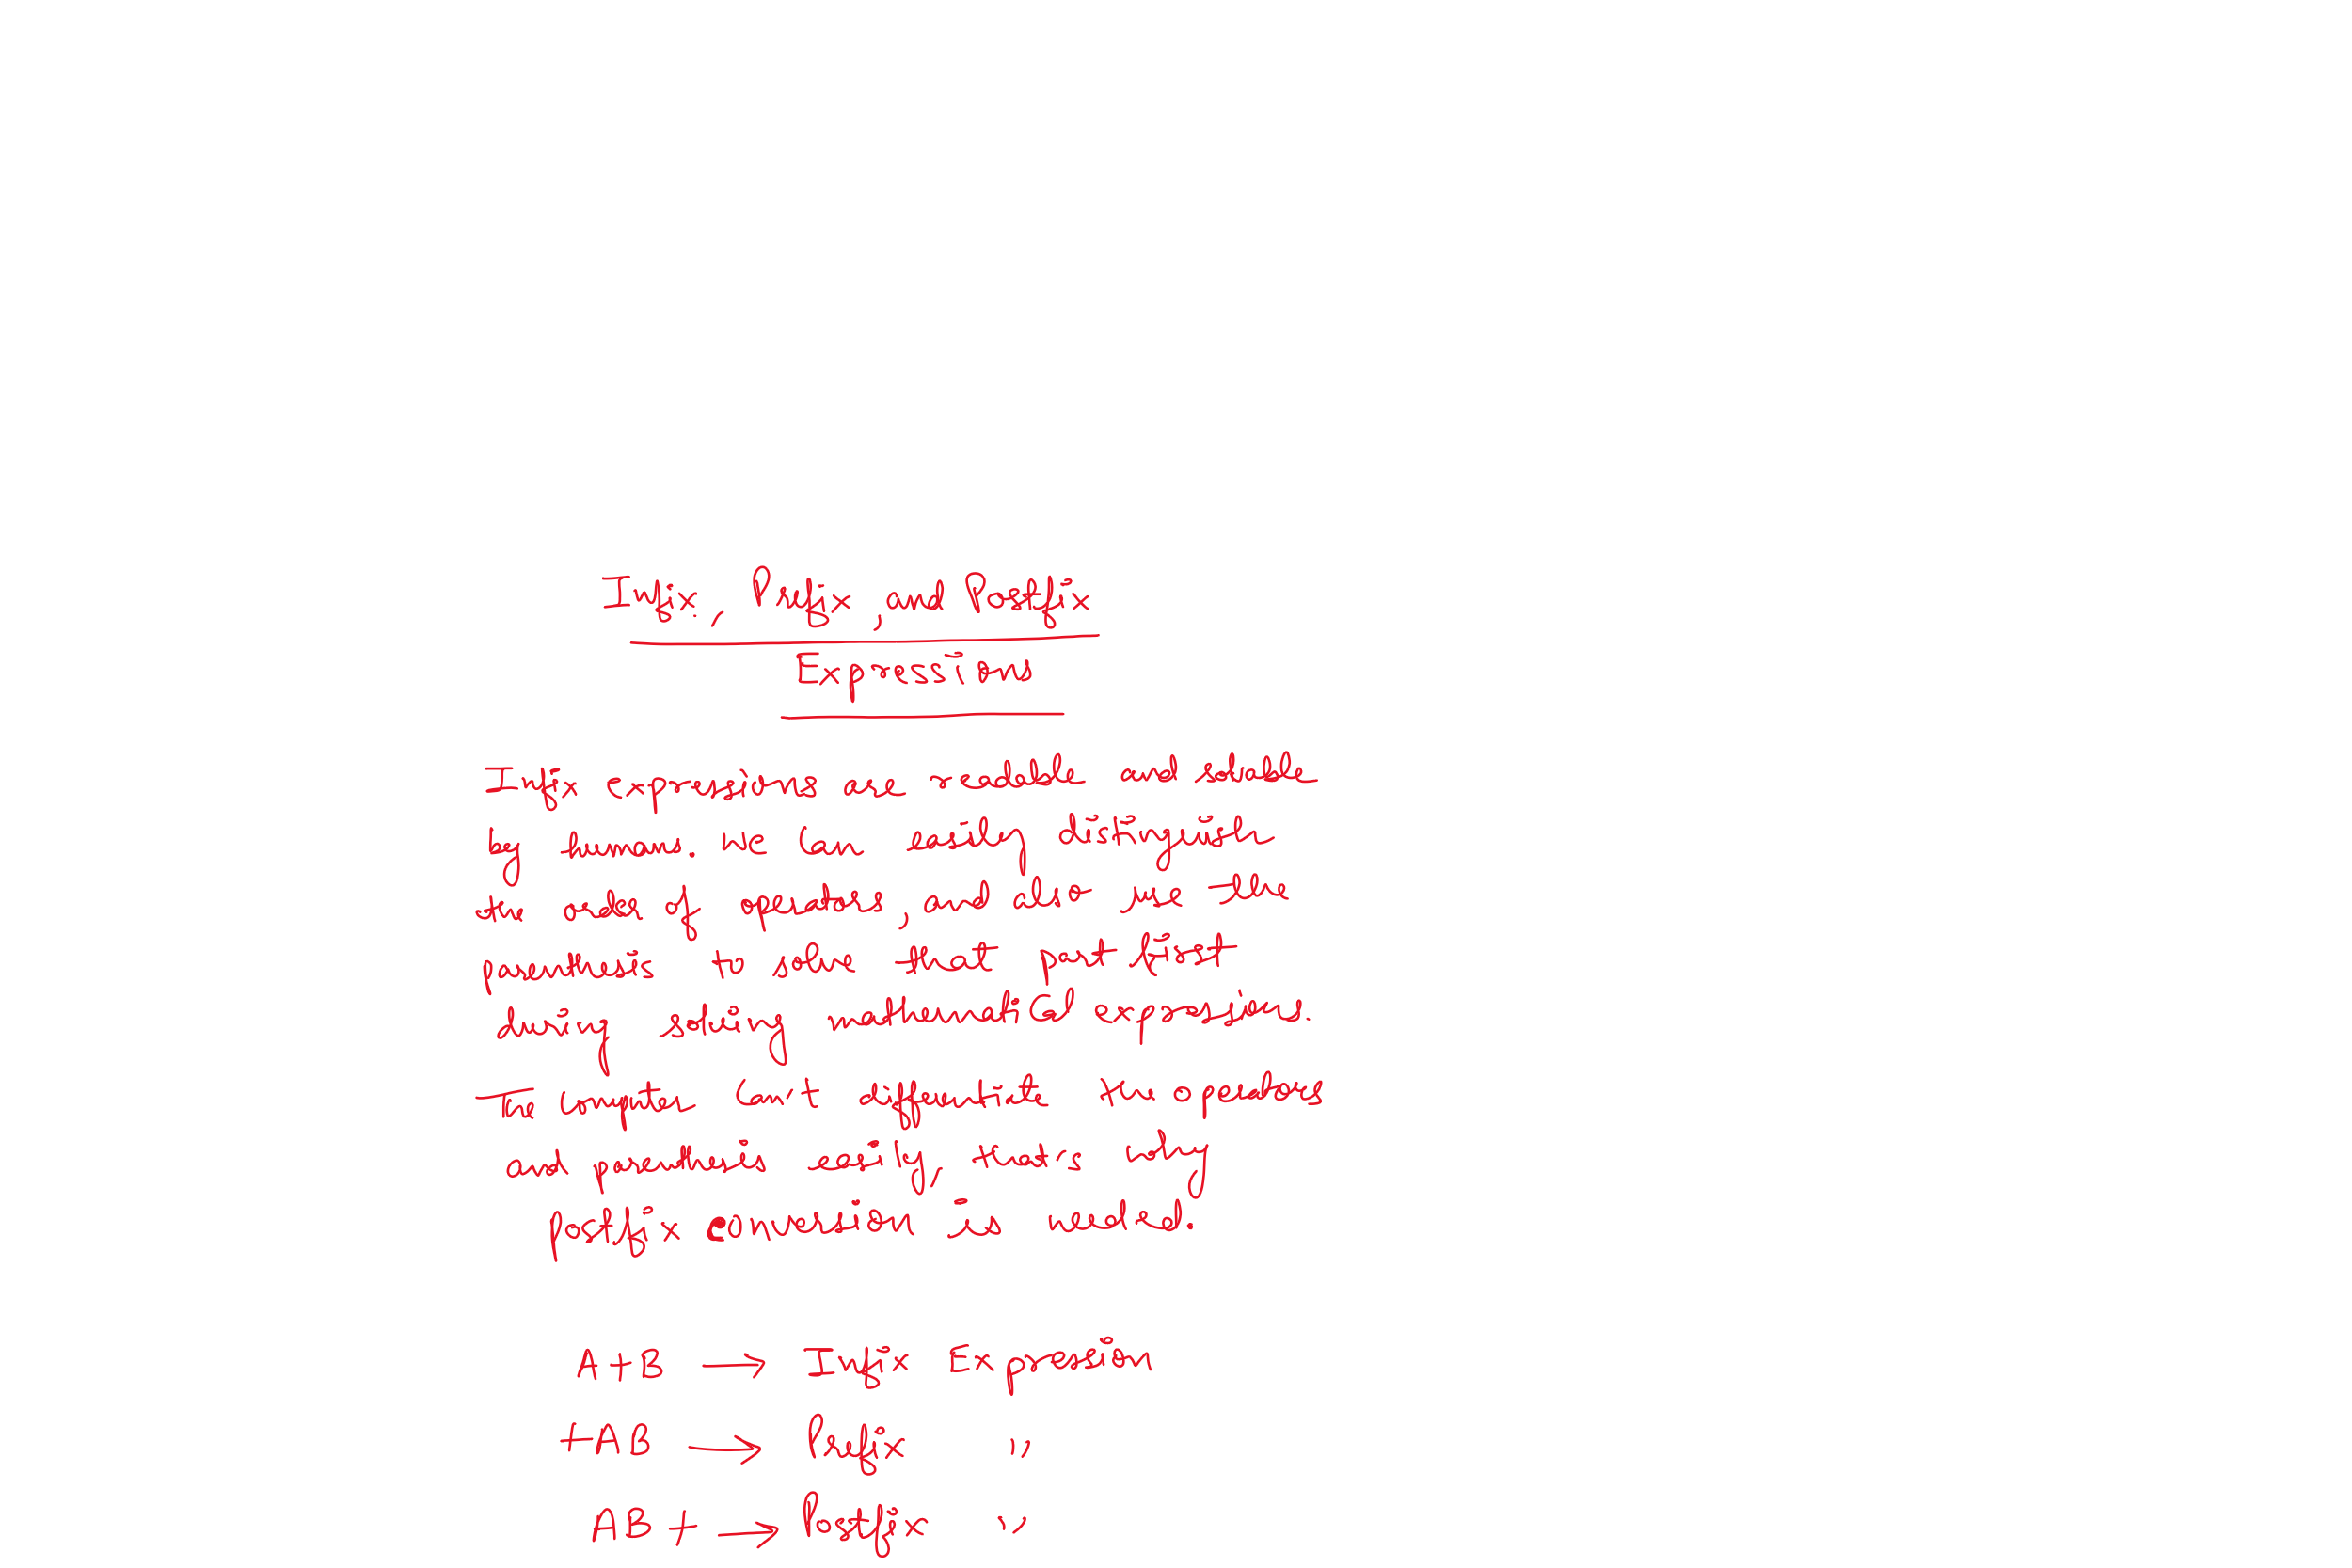 Infix, Prefix, and Postfix
Expressions
Infix expressions are readable and solvable
by human. We can easily distinguish
the order of operator, and also use the
parenthesis to solve that part first
during solving mathematical expressions.
The computer can't differentiate the operators
and parenthesis easily, that's why
postfix conversion is needed.
A+B → Infix Expression
+AB → Prefix ,,
AB+ → Postfix ,,